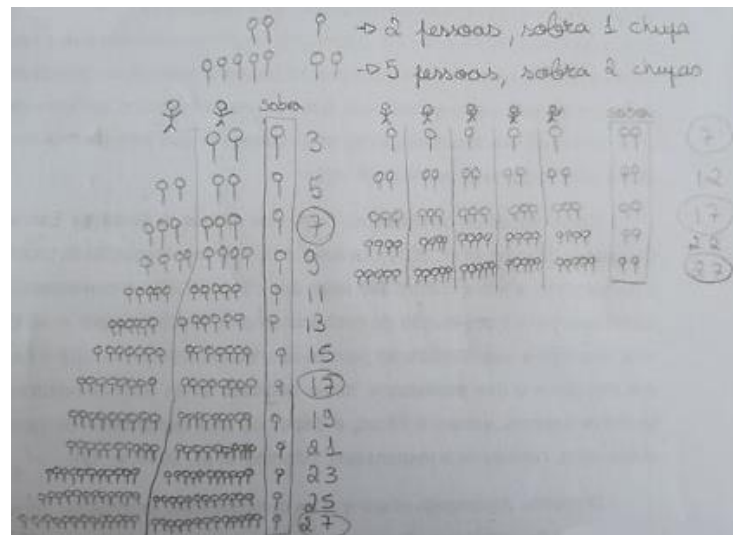 → 2 pessoas, sobra 1 chupa
→ 5 pessoas, sobra 2 chupas
sobra
3
5
7
9
11
13
15
17
19
21
23
25
27
sobra
7
12
17
22
27